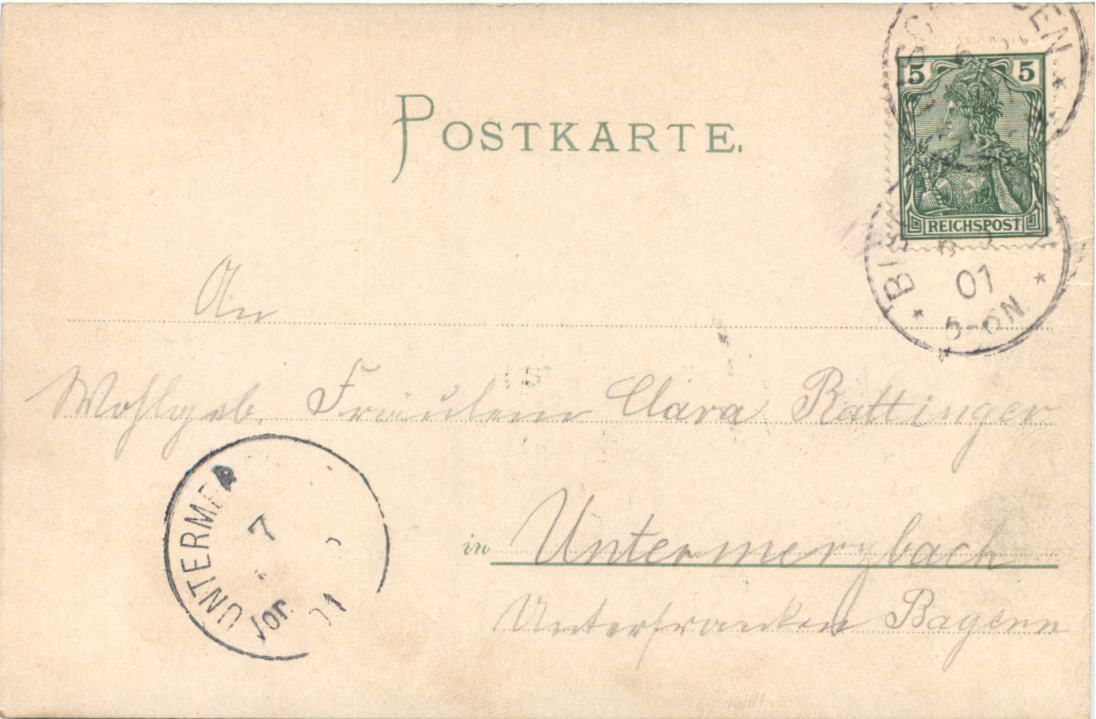 POSTKARTE.
5 5
REICHSPOST
BIS
01
5-6N.
An
Wohlgeb. Fräulein Clara Rattinger
in Untermerzbach
Unterfranken Bayern
UNTERME
7
Vor.
01